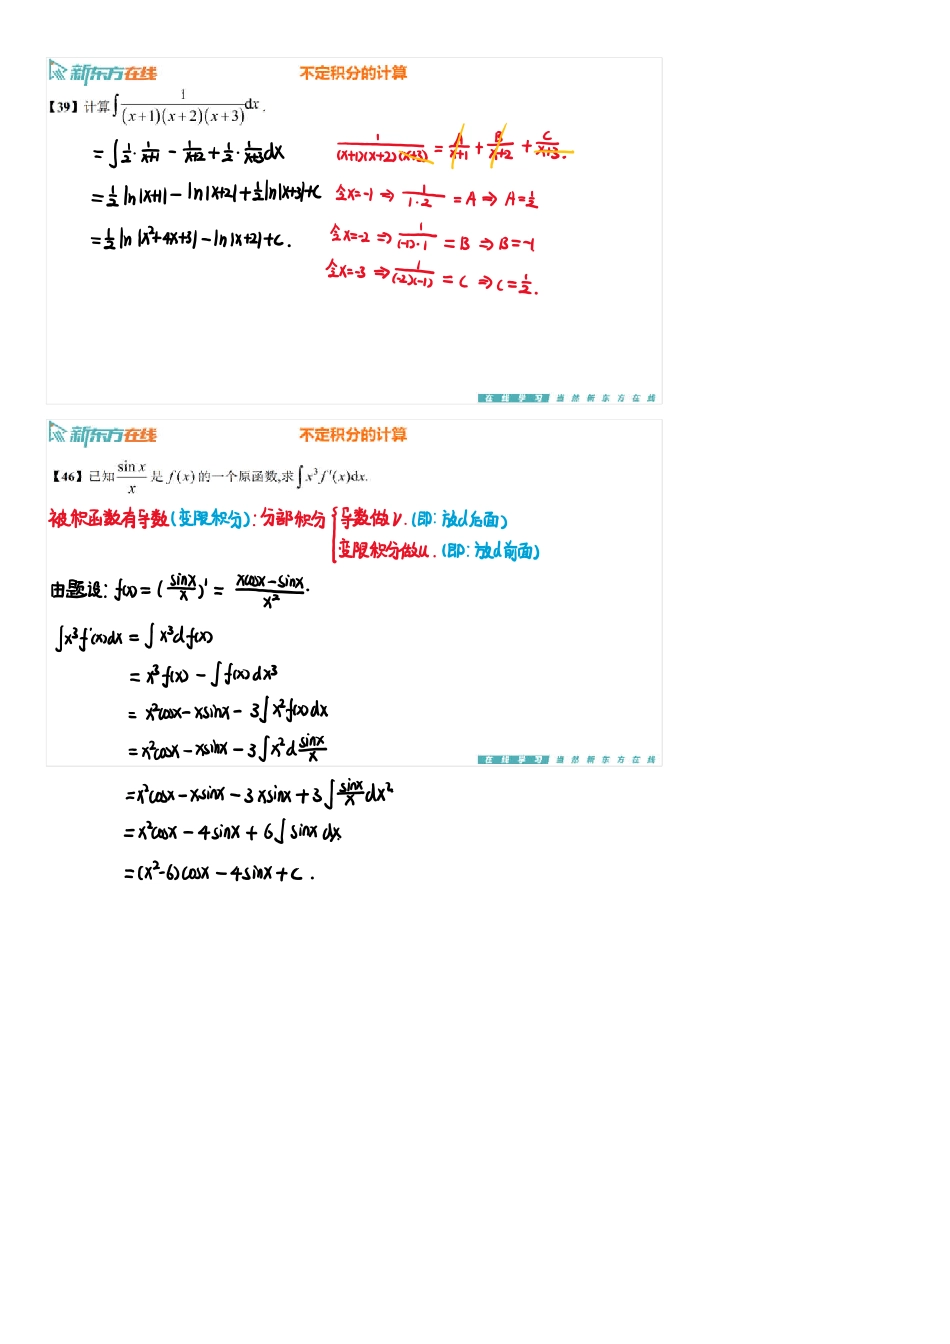 新东方在线 不定积分的计算
【39】计算∫ 1/((x+1)(x+2)(x+3)) dx.
= ∫ 1/2 · 1/(x+1) - 1/(x+2) + 1/2 · 1/(x+3) dx
= 1/2 ln|x+1| - ln|x+2| + 1/2 ln|x+3| + C
= 1/2 ln|x²+4x+3| - ln|x+2| + C.
1/((x+1)(x+2)(x+3)) = A/(x+1) + B/(x+2) + C/(x+3).
令x=-1 ⇒ 1/(1·2) = A ⇒ A=1/2
令x=-2 ⇒ 1/((-1)·1) = B ⇒ B=-1
令x=-3 ⇒ 1/((-2)(-1)) = C ⇒ C=1/2.
在线学习 当然新东方在线
新东方在线 不定积分的计算
【46】已知 sin x/x 是 f(x) 的一个原函数,求∫x³f′(x)dx.
被积函数有导数(变限积分): 分部积分 { 导数做v. (即: 放d后面)
变限积分做u. (即: 放d前面)
由题设: f(x) = (sinx/x)′ = (xcosx-sinx)/x².
∫x³f′(x)dx = ∫x³df(x)
= x³f(x) - ∫f(x)dx³
= x²cosx - xsinx - 3∫x²f(x)dx
= x²cosx - xsinx - 3∫x²d sinx/x
在线学习 当然新东方在线
= x²cosx - xsinx - 3xsinx + 3∫ sinx/x dx²
= x²cosx - 4sinx + 6∫sinx dx
= (x²-6)cosx - 4sinx + C.